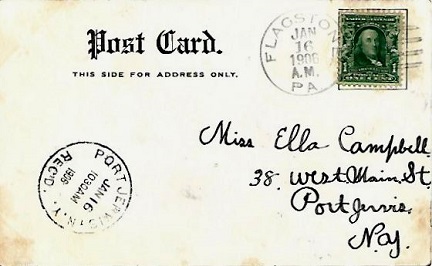 Post Card.
THIS SIDE FOR ADDRESS ONLY.
JAN
16
1906
A.M.
PA
Miss Ella Campbell
38. West Main St
Port Jervis.
N.Y.
PORT JERVIS, N.Y.
JAN 16
1030AM
1906
REC'D.